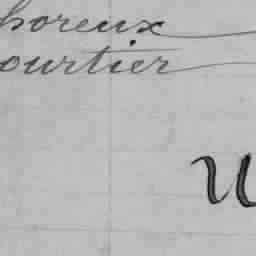 horeux
ourtier
U